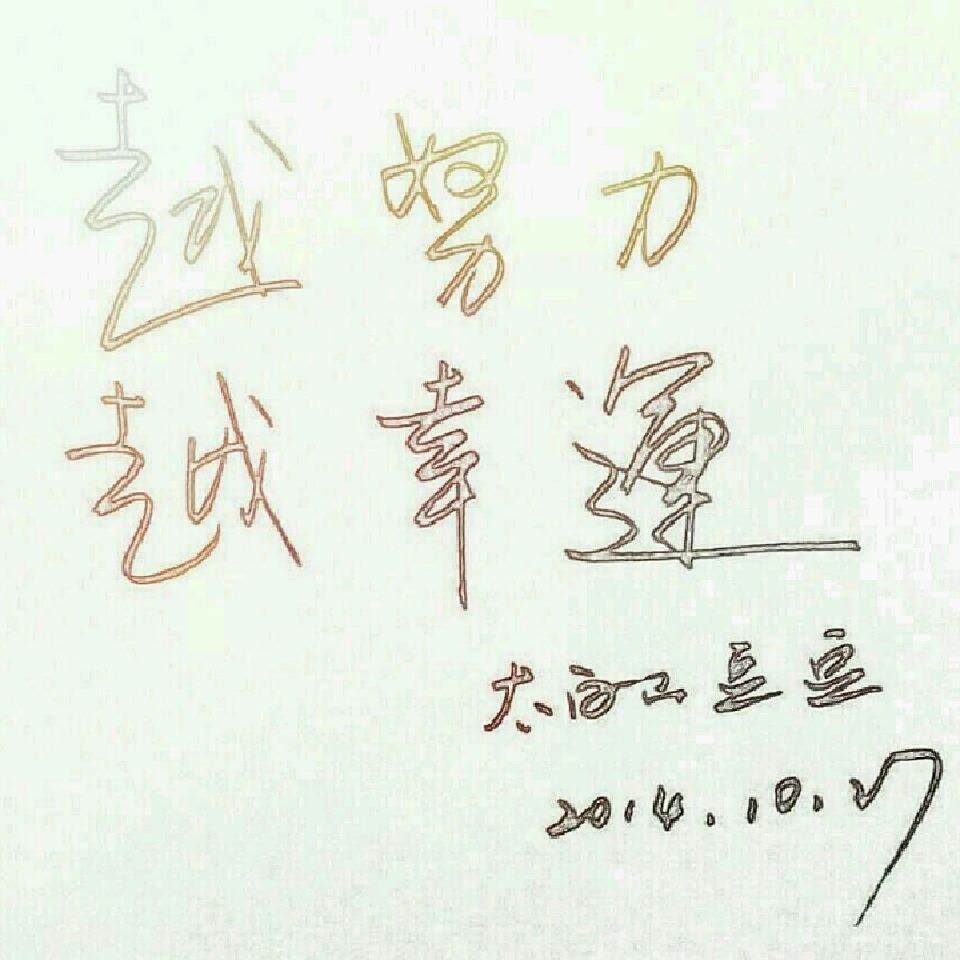 越努力
越幸運
太
2014.10.27